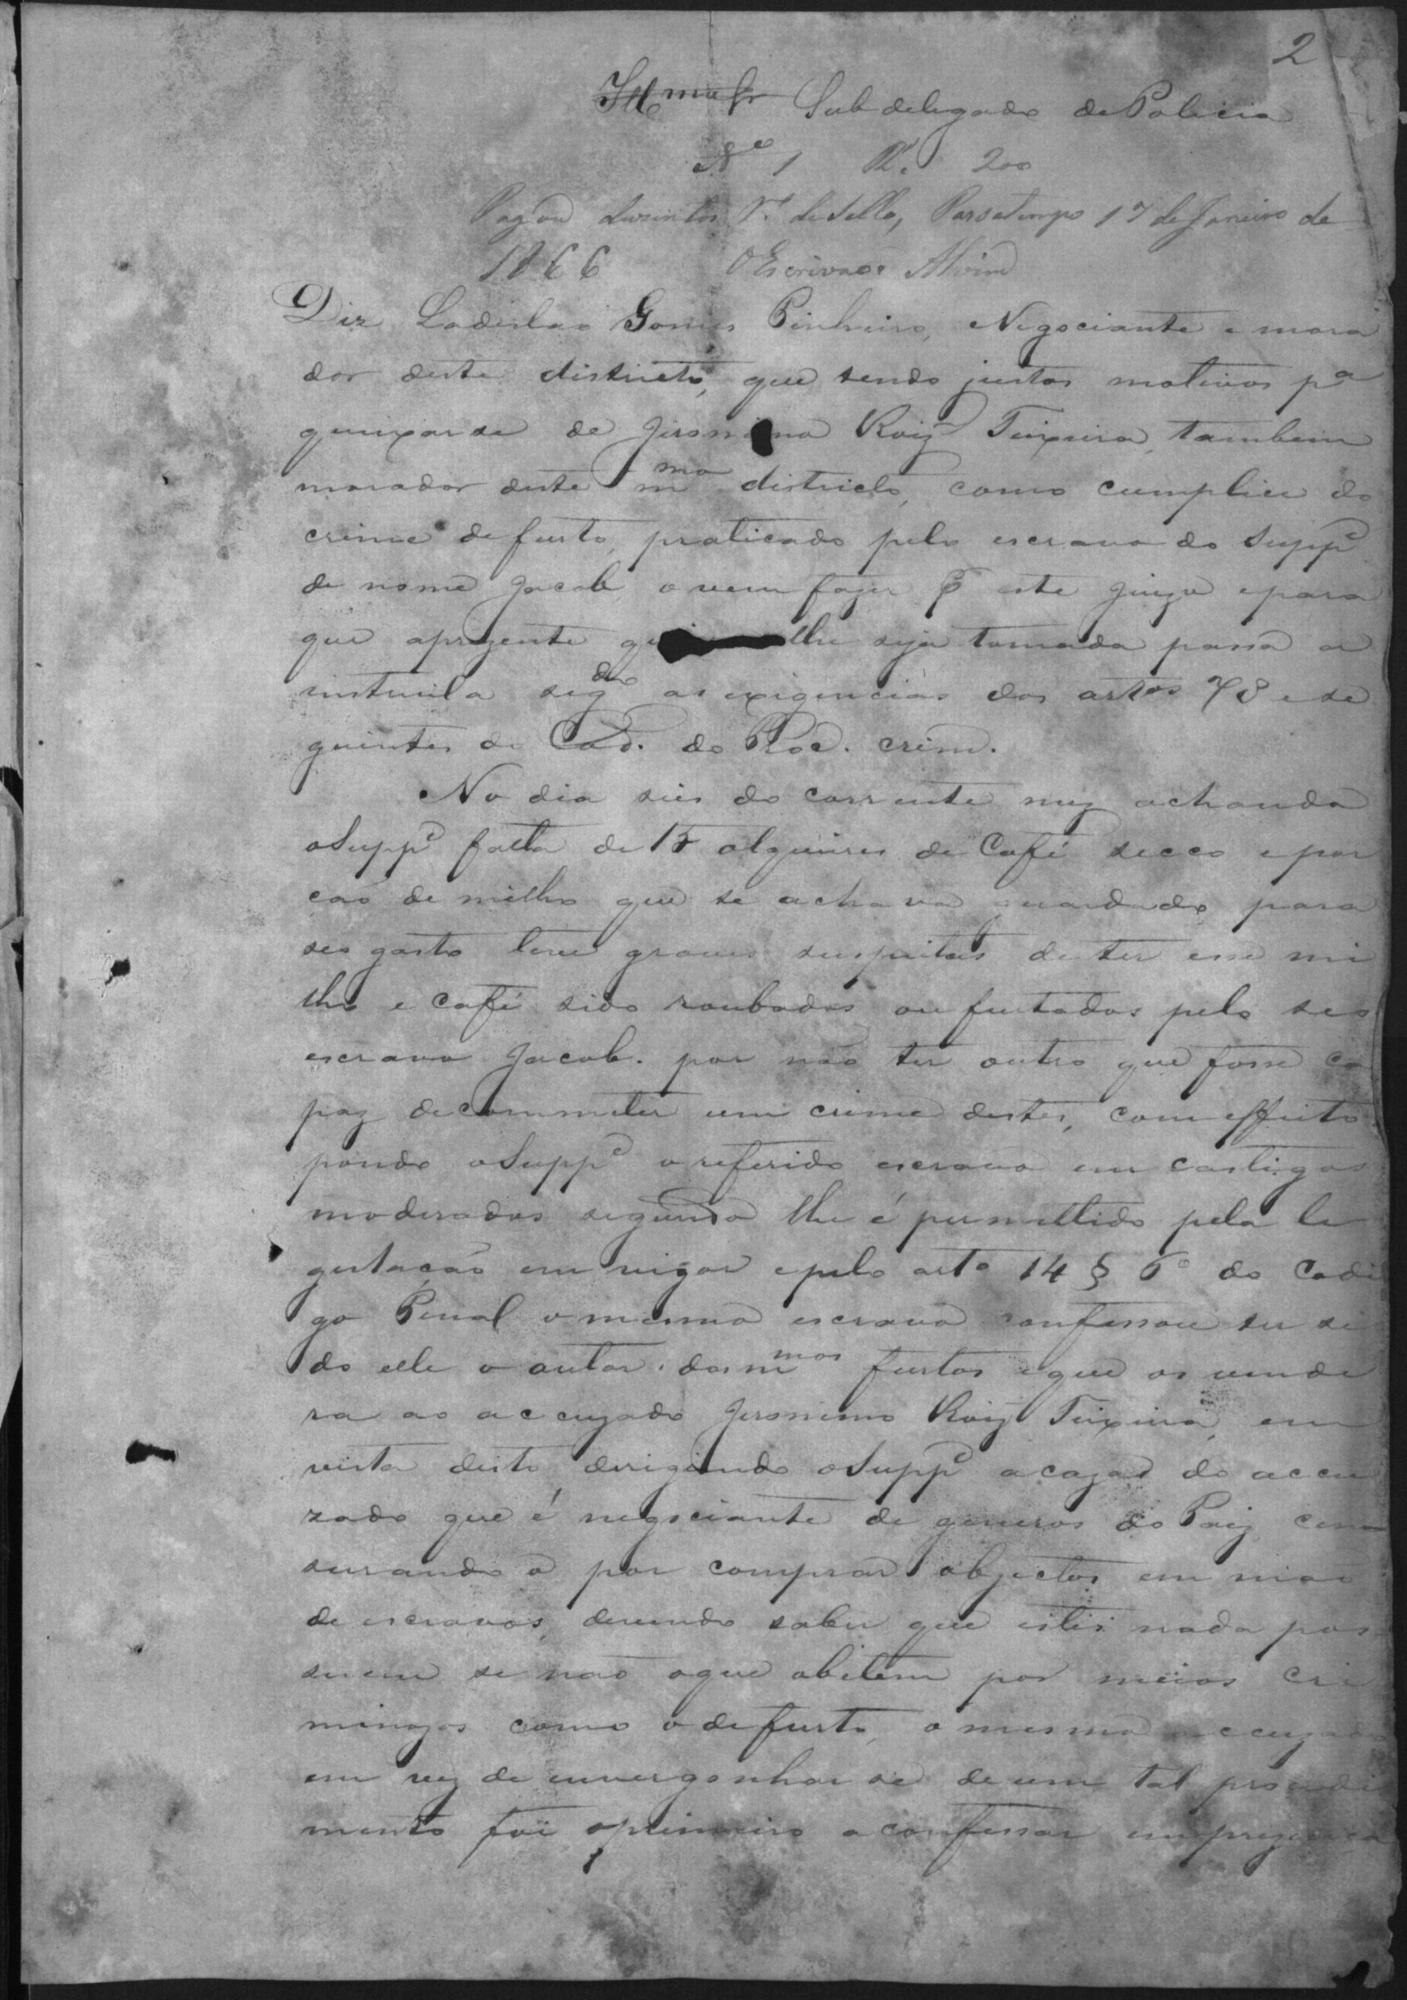 2
Illmo Sr Subdelegado de Policia
No 1 R. 200
Pagou duzentos rs. de sello, Passatempo 17 de Janeiro de
1866 O Escrivão Alvim
Diz Ladislao Gomes Pinheiro, Negociante e mora
dor deste districto, que tendo justos motivos pa
queixarse de Jeronimo Roiz Teixeira, tambem
morador deste mmo districto, como cumplice do
crime de furto, praticado pelo escravo do Suppe
de nome Jacob o vem fazer p este Juizo e para
que aprezente lhe seja tomada passa a
instruila segdo as exigencias dos artos 78 e se
guintes do Cod. do Proc. crim.
No dia seis do corrente mez achando
o Suppe falta de 15 alqueires de Café secco e por
ção de milho que se achava guardado para
seo gasto teve graves suspeitas de ter esse mi
lho e café sido roubados ou furtados pelo seo
escravo Jacob. por não ter outro que fosse ca
paz de commeter um crime destes, com effeito
pondo o Suppe o referido escravo em castigos
moderados segundo lhe é permettido pela le
gislação em vigor e pelo arto 14 § 6o do Codi
go Penal o mesmo escravo confessou ter si
do elle o autor dos mmos furtos e que os vende
ra ao accuzado Jeronimo Roiz Teixeira, em
vista disto dirigindo o Suppe a caza do accu
zado que é negociante de generos do Paiz, cen
surando o por comprar objectos em mão
de escravos, devendo saber que estes nada pos
suem se não o que obitem por meios cri
minozos como o de furto, o mesmo accuzado
em vez de envergonhar se de um tal procedi
mento foi o primeiro a confessar em prezença